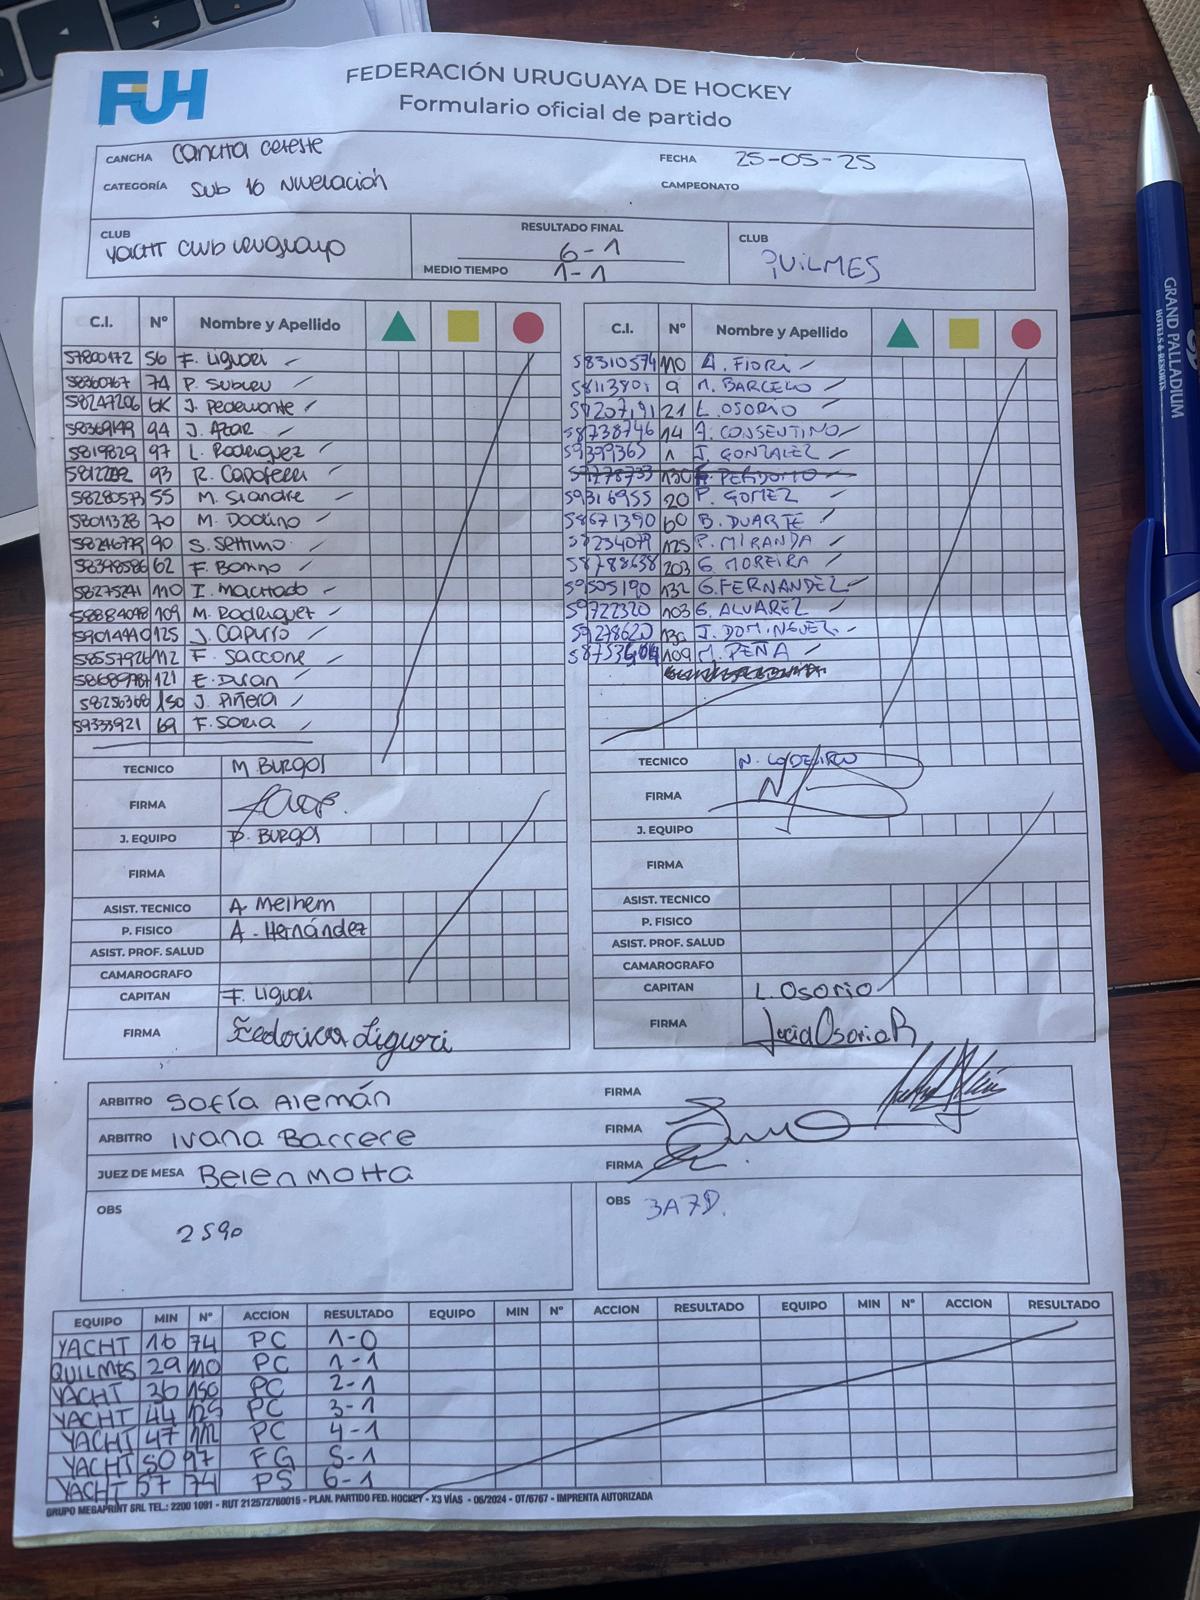 FUH
FEDERACIÓN URUGUAYA DE HOCKEY
Formulario oficial de partido
CANCHA Cancha Celeste FECHA 25-05-25
CATEGORÍA Sub 16 Nivelación CAMPEONATO
CLUB Yacht Club Uruguayo
RESULTADO FINAL 6-1
MEDIO TIEMPO 1-1
CLUB QUILMES
C.I. Nº Nombre y Apellido
57800172 56 F. Liguori
58360767 74 P. Subieu
58247206 6K J. Pedemonte
58369149 94 J. Azar
5819829 97 L. Rodriguez
93 R. Capoferri
58280573 55 M. Siandre
58011328 70 M. Doolino
90 S. Settimo
58398586 62 F. Bonino
58275241 110 I. Machado
58884098 109 M. Rodriguez
59014440 125 J. Capurro
58557926 112 F. Saccone
121 E. Duran
58256368 150 J. Piñera
59333921 69 F. Soria
TECNICO M Burgos
FIRMA
J. EQUIPO D. Burgos
FIRMA
ASIST. TECNICO A. Melhem
P. FISICO A. Hernández
ASIST. PROF. SALUD
CAMAROGRAFO
CAPITAN F. Liguori
FIRMA Federica Liguori
C.I. Nº Nombre y Apellido
58310574 110 A. FIORI
58113801 9 M. BARCELO
58207191 21 L. OSORIO
58738746 14 A. CONSENTINO
59399363 1 J. GONZALEZ
130 PERDOMO
59316955 20 P. GOMEZ
58671390 60 B. DUARTE
125 P. MIRANDA
58788638 203 G. MOREIRA
59505190 132 G. FERNANDEZ
59722320 103 G. ALVAREZ
59278620 J. DOMINGUEZ
109 M. PEÑA
TECNICO N. LODEIRO
FIRMA
J. EQUIPO
FIRMA
ASIST. TECNICO
P. FISICO
ASIST. PROF. SALUD
CAMAROGRAFO
CAPITAN L. Osorio
FIRMA Lucia Osorio R
ARBITRO Sofía Alemán FIRMA
ARBITRO Ivana Barrere FIRMA
JUEZ DE MESA Belen Motta FIRMA
OBS 2590
OBS 3A7D.
EQUIPO MIN Nº ACCION RESULTADO EQUIPO MIN Nº ACCION RESULTADO EQUIPO MIN Nº ACCION RESULTADO
YACHT 16 74 PC 1-0
QUILMES 29 110 PC 1-1
YACHT 36 150 PC 2-1
YACHT 44 125 PC 3-1
YACHT 47 112 PC 4-1
YACHT 50 97 FG 5-1
YACHT 57 74 PS 6-1
GRUPO MEGAPRINT SRL TEL.: 2200 1091 - RUT 212572760015 - PLAN. PARTIDO FED. HOCKEY - X3 VÍAS - 06/2024 - OT/6767 - IMPRENTA AUTORIZADA
GRAND PALLADIUM
HOTELS & RESORTS